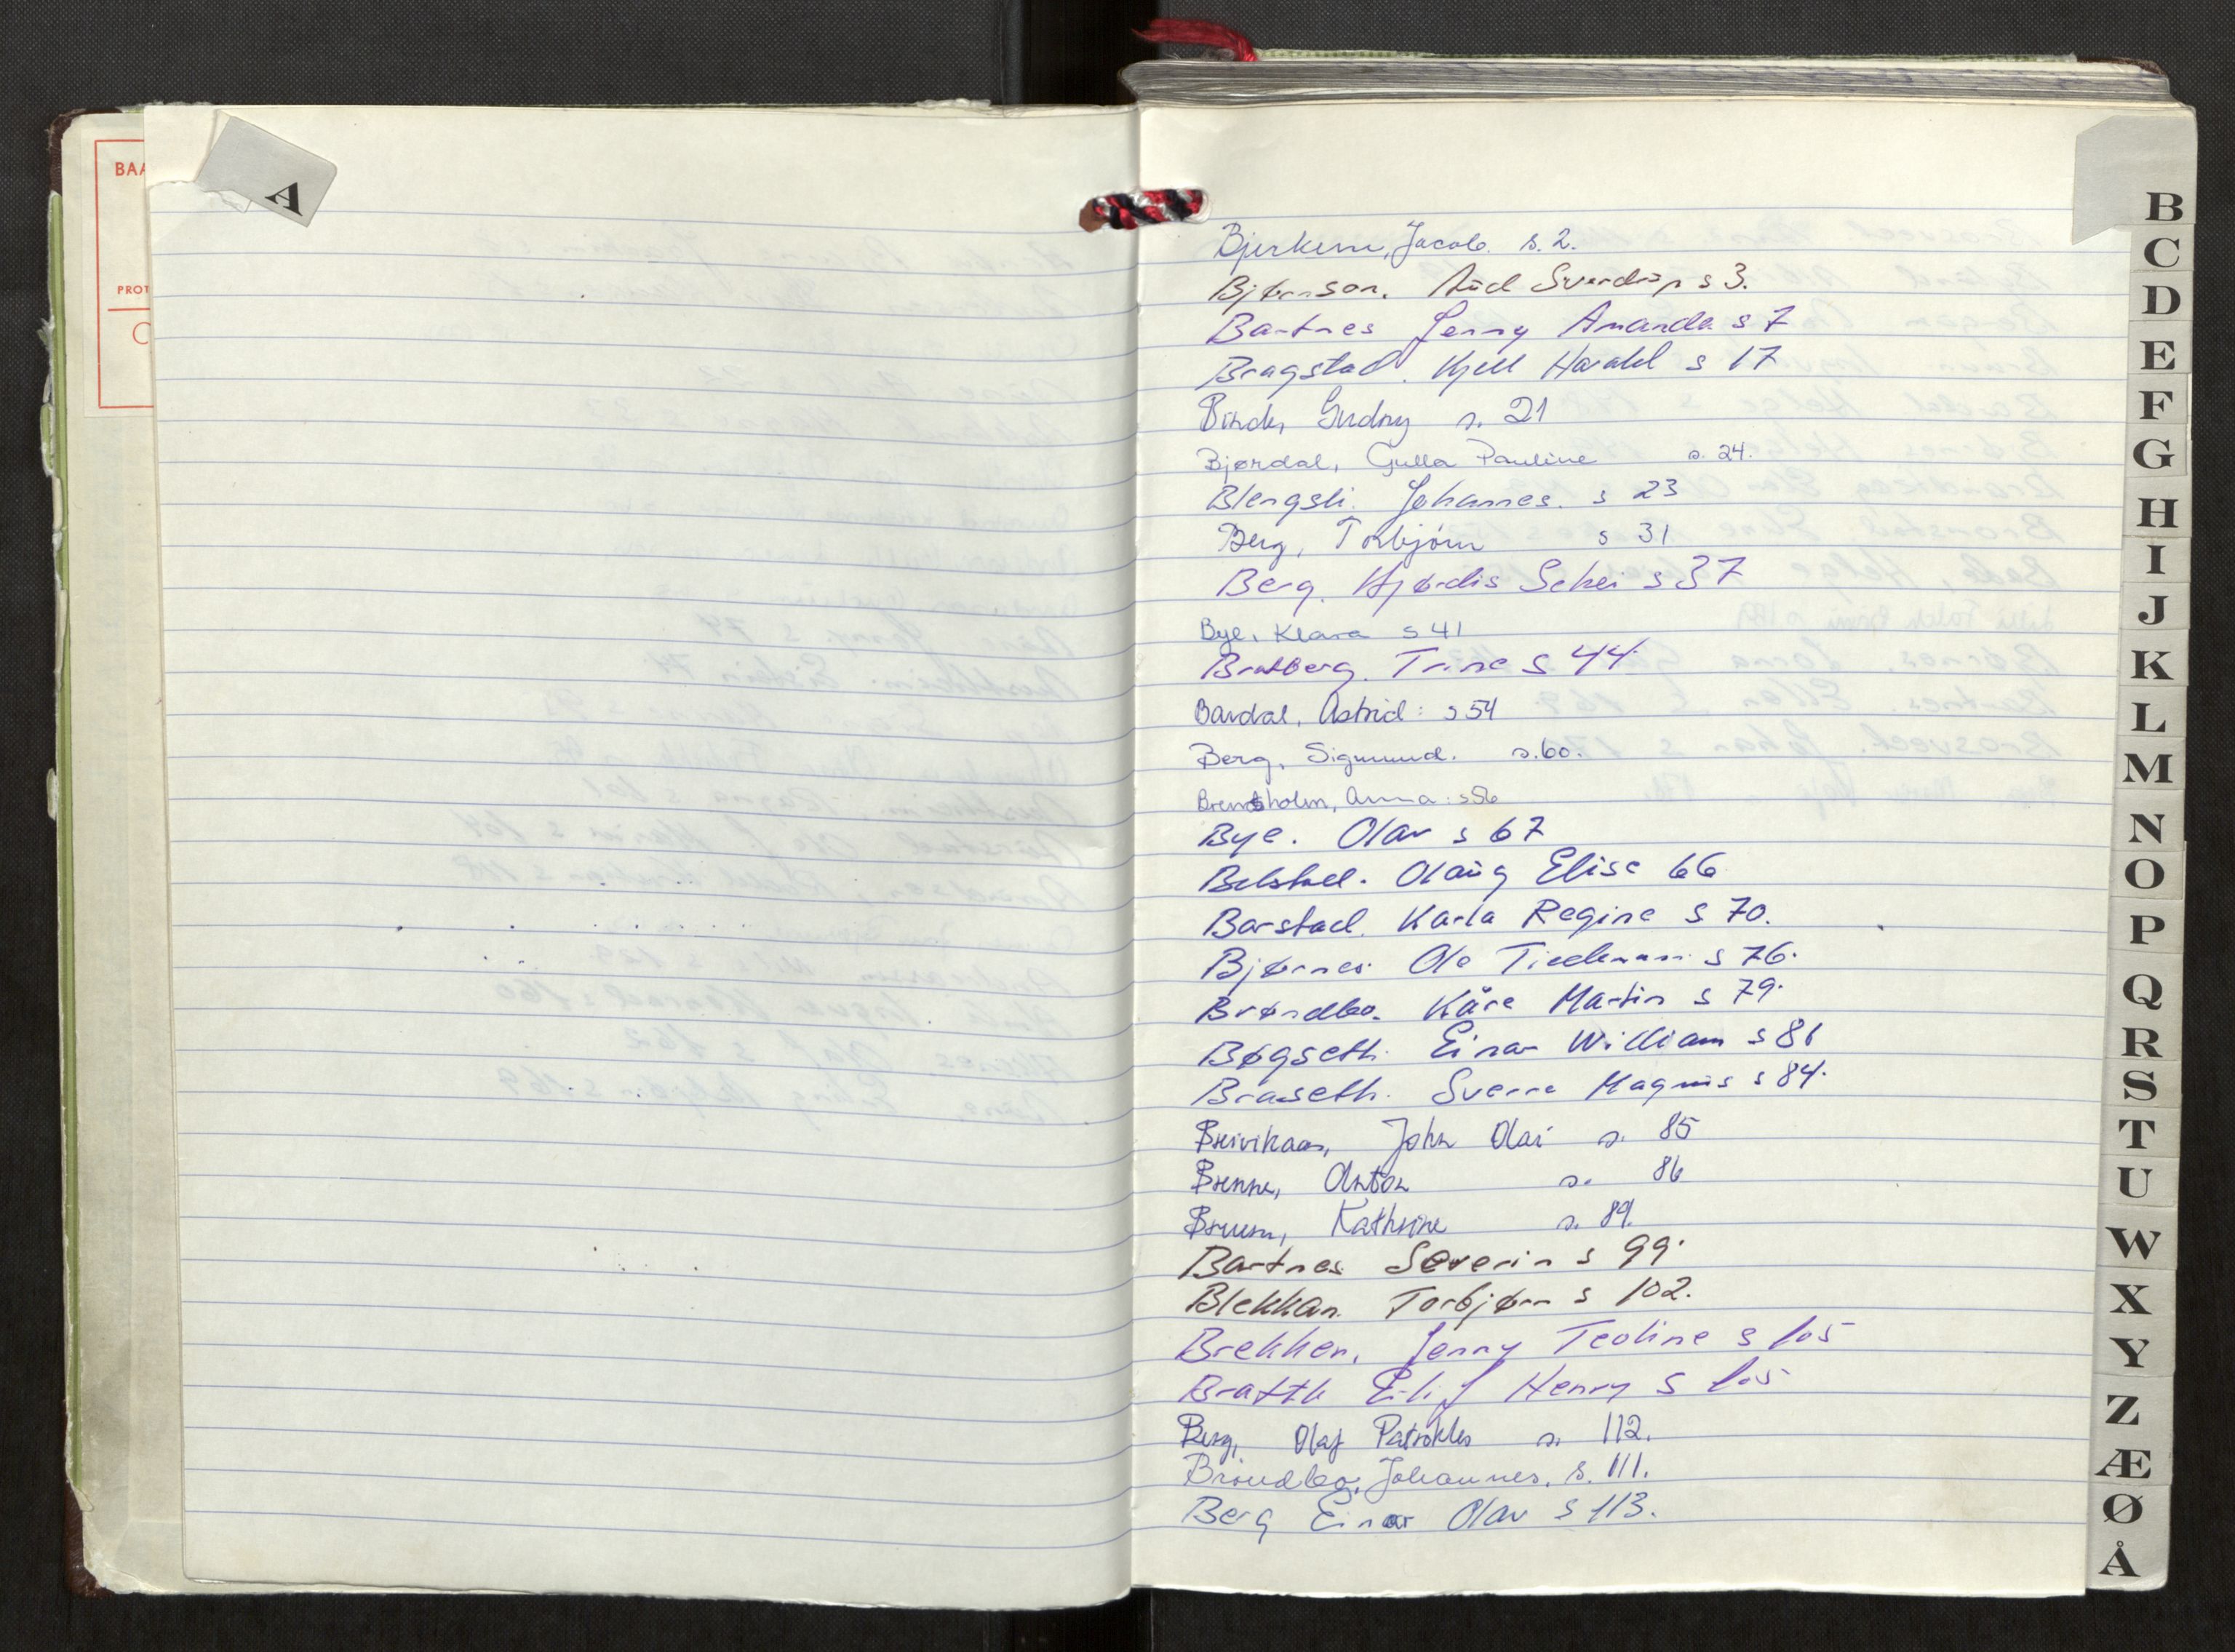 BAA
PROT
A
Bjerkem, Jacob. s. 2.
Bjørnson. Aüd Sverdrüp s 3.
Bartnes Jenny Amanda s 7
Bragstad. Kjell Harald s 17
Binde, Gudny s. 21
Bjørdal, Gulla Pauline s. 24.
Blengsli. Johannes. s 23
Berg, Torbjörn s 31
Berg. Hjørdis Schei s 37
Bye, Klara s 41
Bratberg. Trine s 44
Bardal, Astrid: s 54
Berg, Sigmund. s. 60.
Anna: s 56
Bye. Olav s 67
Belstad. Olaüg Elise 66
Barstad. Karla Regine s 70.
Bjørnes Ola Tiedemann s 76.
Brøndbo. Kåre Martin s 79.
Bøgseth. Einar William s 81
Braseth. Sverre Magnüs s 84.
Breivikaas, John Olai s. 85
Brenne, Anton s. 86
Bruem, Kathrine s. 89.
Bartnes Severin s 99.
Blekkan. Torbjørn s 102.
Brekken, Jenny Teoline s 105
Bratth Eilif Henry s 105
Berg, Olaf Patrokles s. 112.
Bröndbo, Johannes, s. 111.
Berg Einar Olav s 113.
B
C
D
E
F
G
H
I
J
K
L
M
N
O
P
Q
R
S
T
U
W
X
Y
Z
Æ
Ø
Å